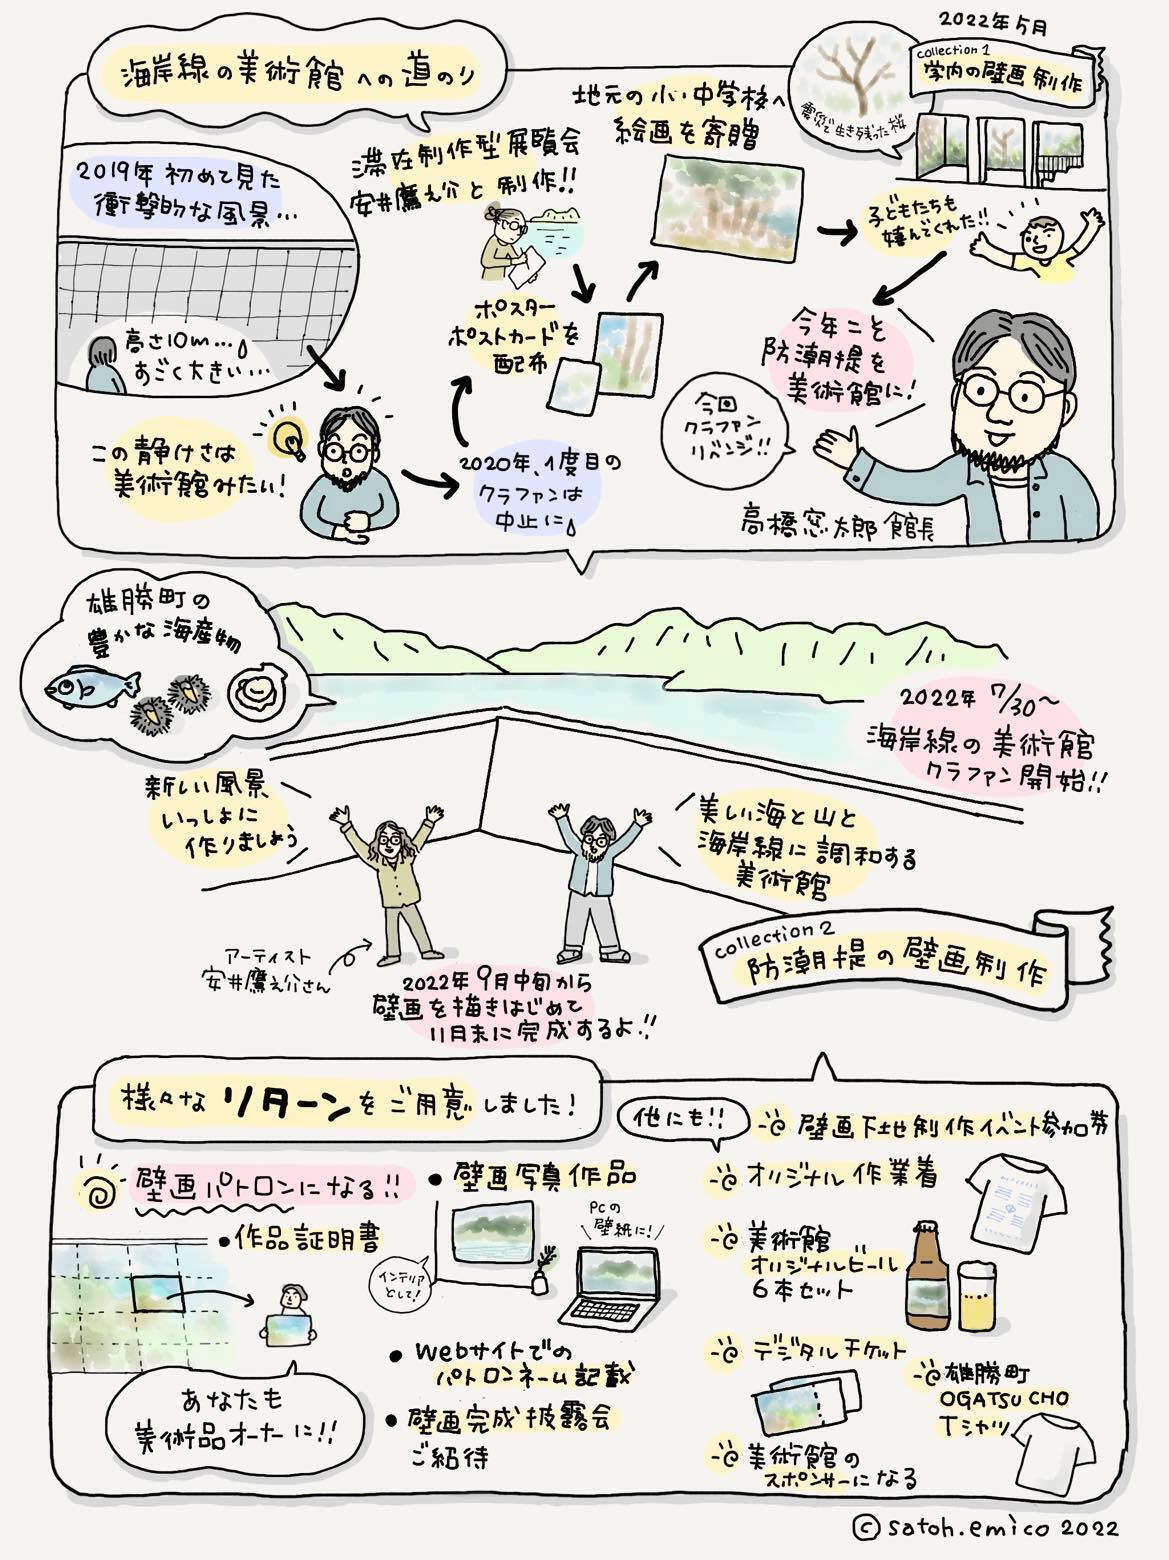 海岸線の美術館への道のり
2019年 初めて見た
衝撃的な風景…
高さ10m…
すごく大きい…
この静けさは
美術館みたい!
2020年、1度目の
クラファンは
中止に
滞在制作型展覧会
安井鷹之介と制作!!
ポスター
ポストカードを
配布
地元の小・中学校へ
絵画を寄贈
2022年5月
collection 1
学内の壁画制作
震災で生き残った桜
子どもたちも
喜んでくれた!!
今年こそ
防潮堤を
美術館に!
今回
クラファン
リベンジ!!
高橋窓太郎 館長
雄勝町の
豊かな海産物
2022年 7/30〜
海岸線の美術館
クラファン開始!!
新しい風景
いっしょに
作りましょう
美しい海と山と
海岸線に調和する
美術館
アーティスト
安井鷹之介さん
2022年9月中旬から
壁画を描きはじめて
11月末に完成するよ!!
collection 2
防潮堤の壁画制作
様々なリターンをご用意しました!
壁画パトロンになる!!
●作品証明書
あなたも
美術品オーナーに!!
●壁画写真作品
インテリア
として!
PCの
壁紙に!
●Webサイトでの
パトロンネーム記載
●壁画完成披露会
ご紹待
他にも!!
壁画下地制作イベント参加券
オリジナル作業着
美術館
オリジナルビール
6本セット
デジタルチケット
雄勝町
OGATSU CHO
Tシャツ
美術館の
スポンサーになる
©satoh.emico 2022